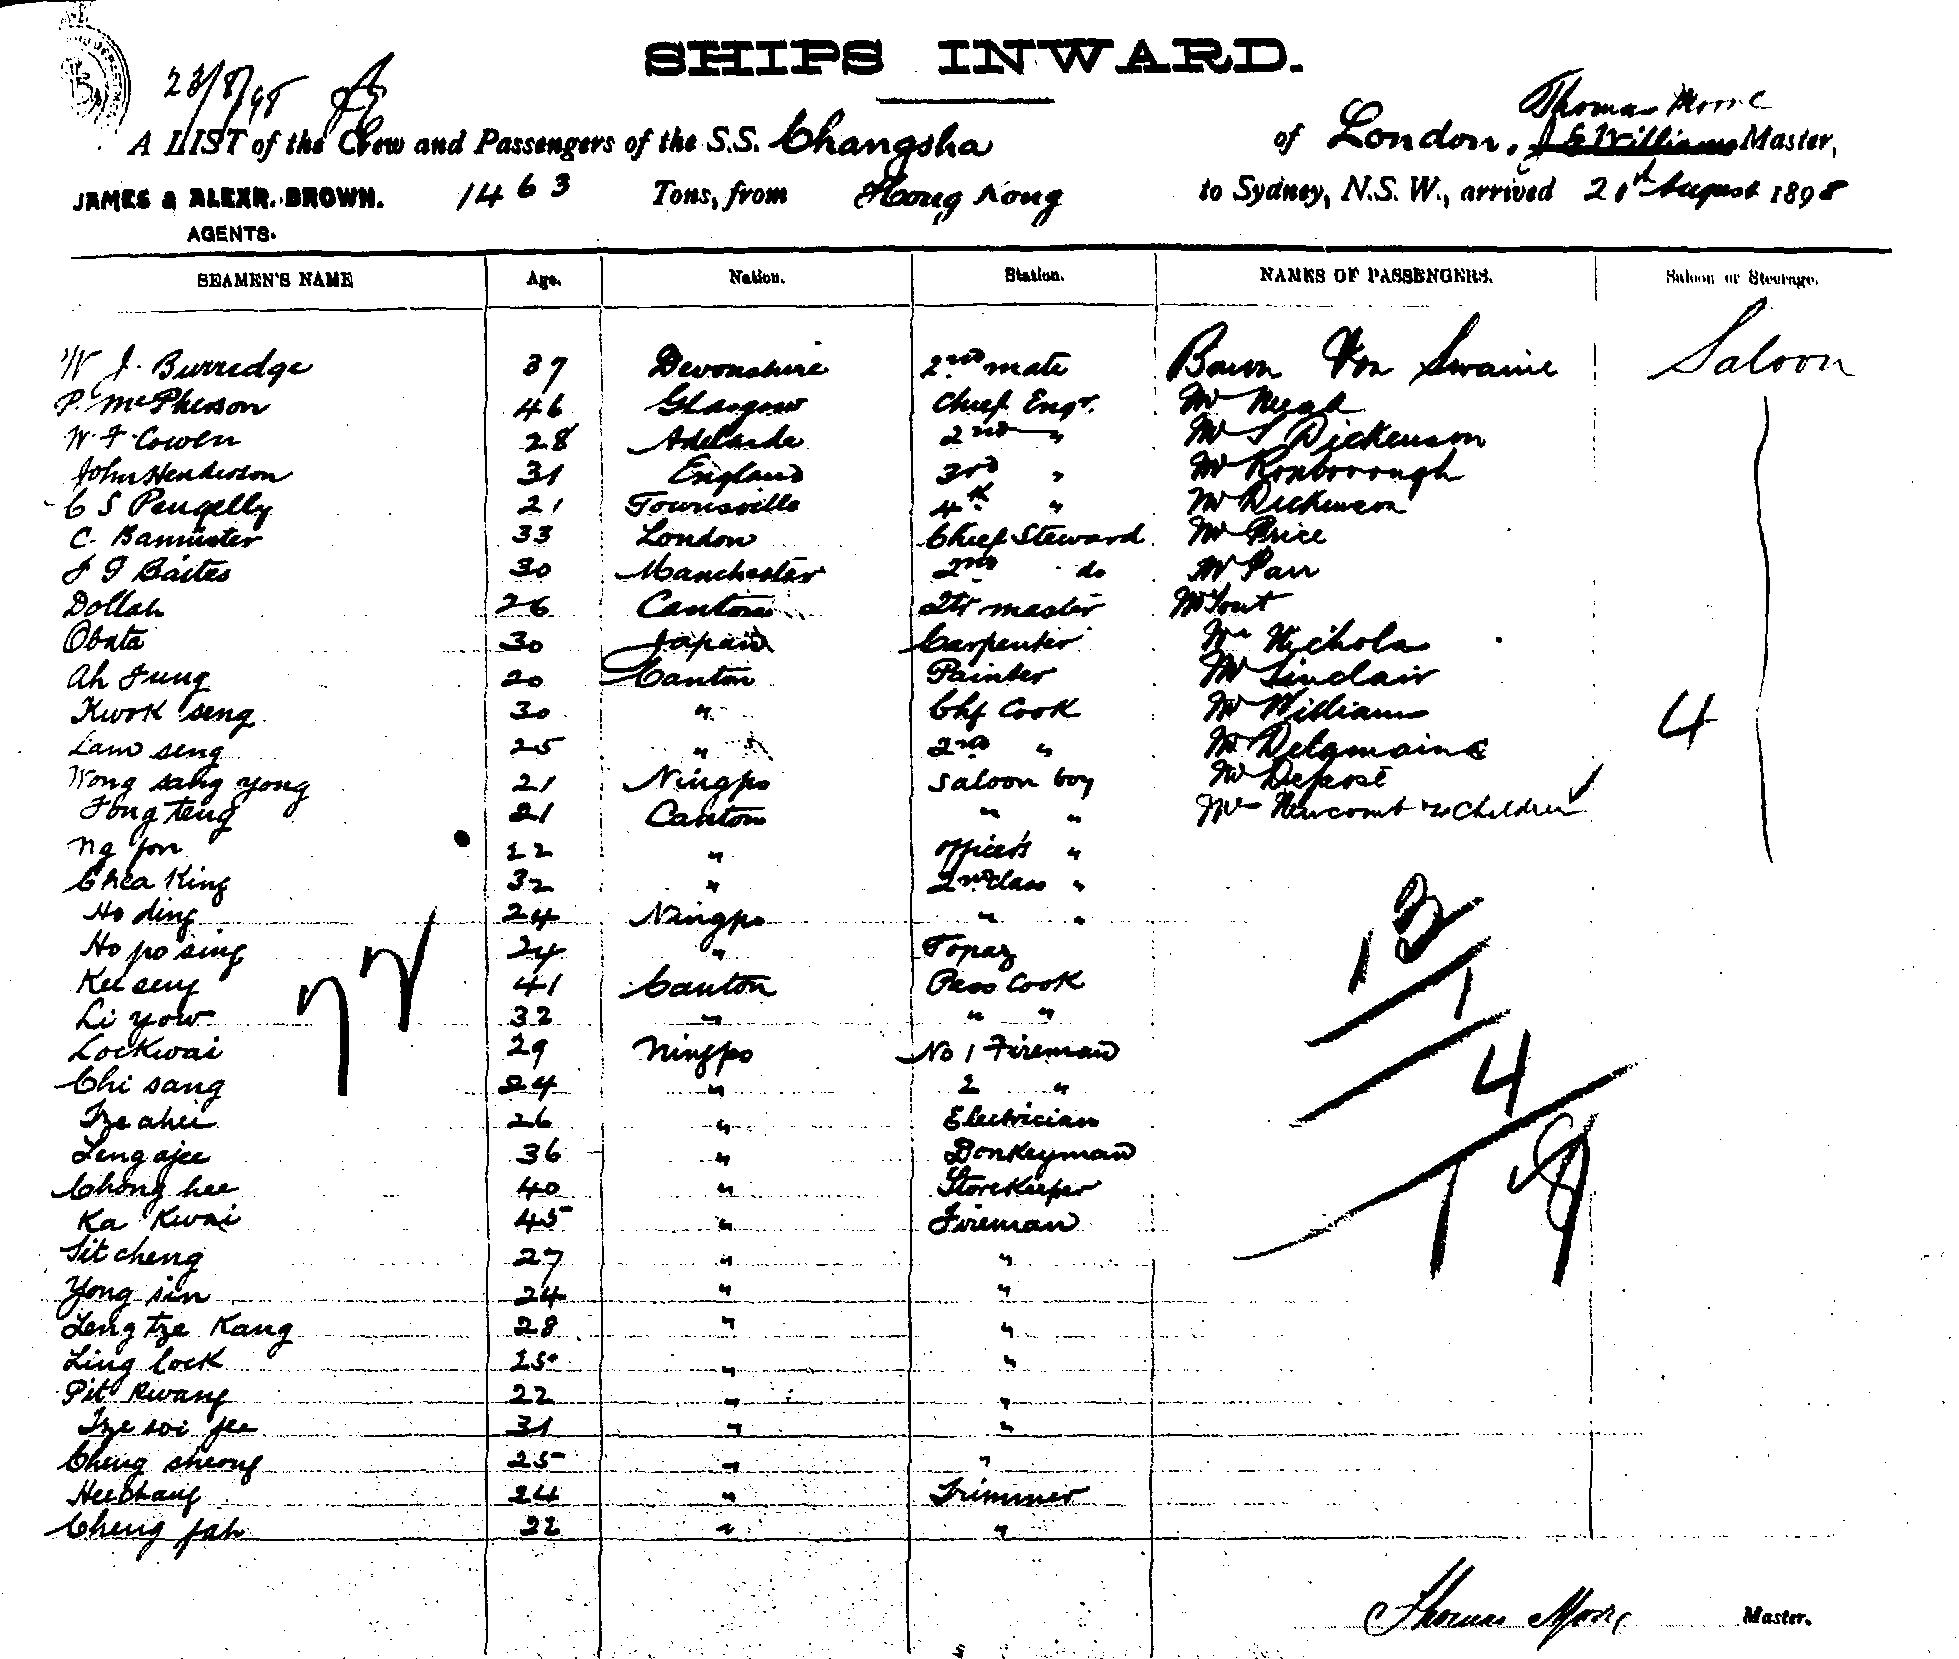 SHIPS INWARD.
23/8/98
Thomas Moore
A LIST of the Crew and Passengers of the S.S. Changsha of London, J E Williams Master,
JAMES & ALEXR. BROWN. 1463 Tons, from Hong Kong to Sydney, N.S.W., arrived 21st August 1898
AGENTS.
SEAMEN'S NAME Age. Nation. Station. NAMES OF PASSENGERS. Saloon or Steerage.
W J. Burredge 37 Devonshire 2nd mate Baron Von Swaine Saloon
P. McPherson 46 Glasgow Chief Engr. Mr
W. F. Cowen 28 Adelaide 2nd " Mr S Dickenson
John Henderson 31 England 3rd " Mr Roxborough
C S Pengelly 21 Townsville 4th " Mr Dickenson
C. Bannister 33 London Chief Steward Mr Price
J F Baites 30 Manchester 2nd do Mr Parr
Dollah 26 Canton Qtr master
Obata 30 Japan Carpenter Mr Nichols
Ah Fung 20 Canton Painter Mr Sinclair
Kwok seng 30 " Chf Cook Mr Williams 4
Lam seng 25 " 2nd " Mr Delgmaine
Wong sang yong 21 Ningpo Saloon boy Mr Deposé
Fong teng 21 Canton " " Mrs Newcomb & Children
Ng fon 22 " officers "
Chea King 32 " 2nd class "
Ho ding 24 Ningpo " "
Ho po sing 24 " Topaz
Kee seng 41 Canton Pass Cook
Li yow 32 " " "
Lockwai 29 Ningpo No 1 Fireman
Chi sang 24 " 2 "
Tze ahee 26 " Electrician
Leng ajee 36 " Donkeyman
Chong hee 40 " Storekeeper
Ka Kwai 45 " Fireman
Sit cheng 27 " "
Yong sin 24 " "
Leng tze Kang 28 " "
Ling lock 25 " "
Pit Kwang 22 " "
Tze soi fee 31 " "
Cheng sheong 25 " "
Hee chang 24 " Trimmer
Cheng fah 22 " "
13
1
4
18
Thomas Moore Master.